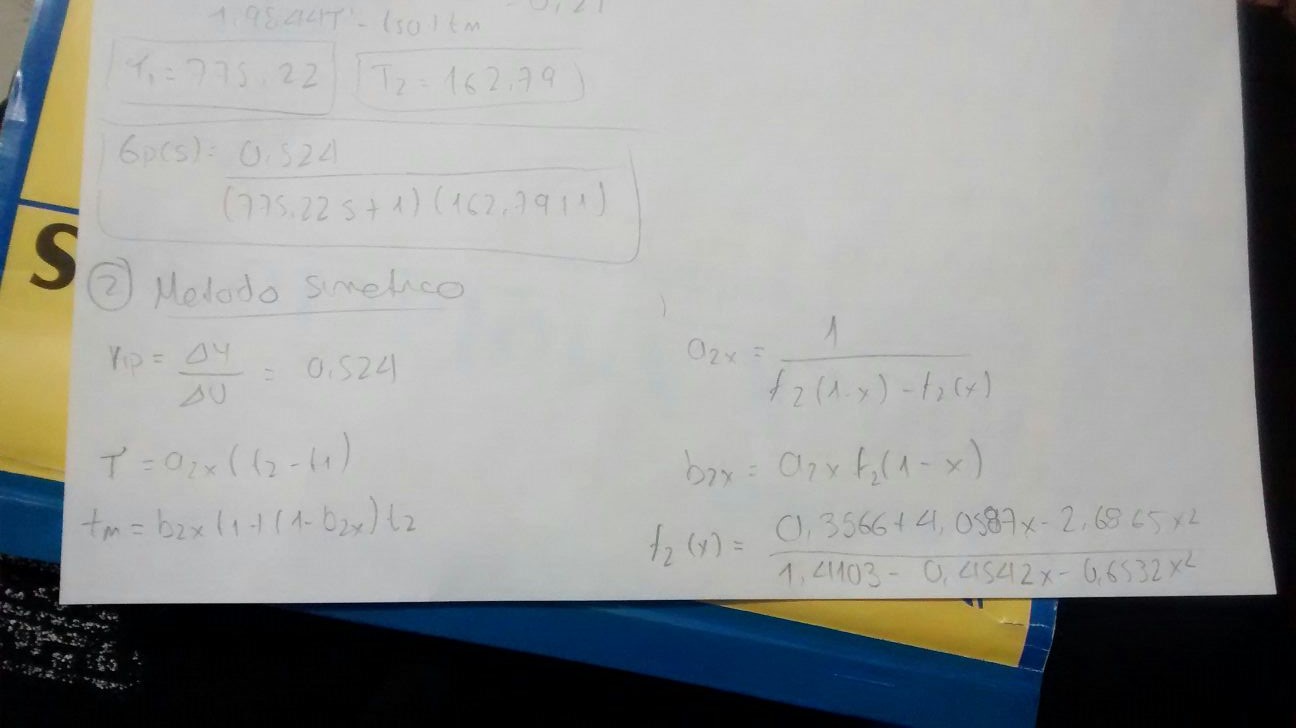 T₁ = 775.22 T₂ = 162.79
Gp(s) = 0.524
(775.22 s + 1) (162.79 s + 1)
S
② Metodo Simetrico
Kp = ΔY / ΔU = 0.524
T = a₂x (t₂ - t₁)
tm = b₂x t₁ + (1 - b₂x) t₂
a₂x = 1 / f₂(1-x) - f₂(x)
b₂x = a₂x f₂(1-x)
f₂(x) = 0,3566 + 4,0587x - 2.6865x² / 1,4103 - 0,4542x - 0,6532x²